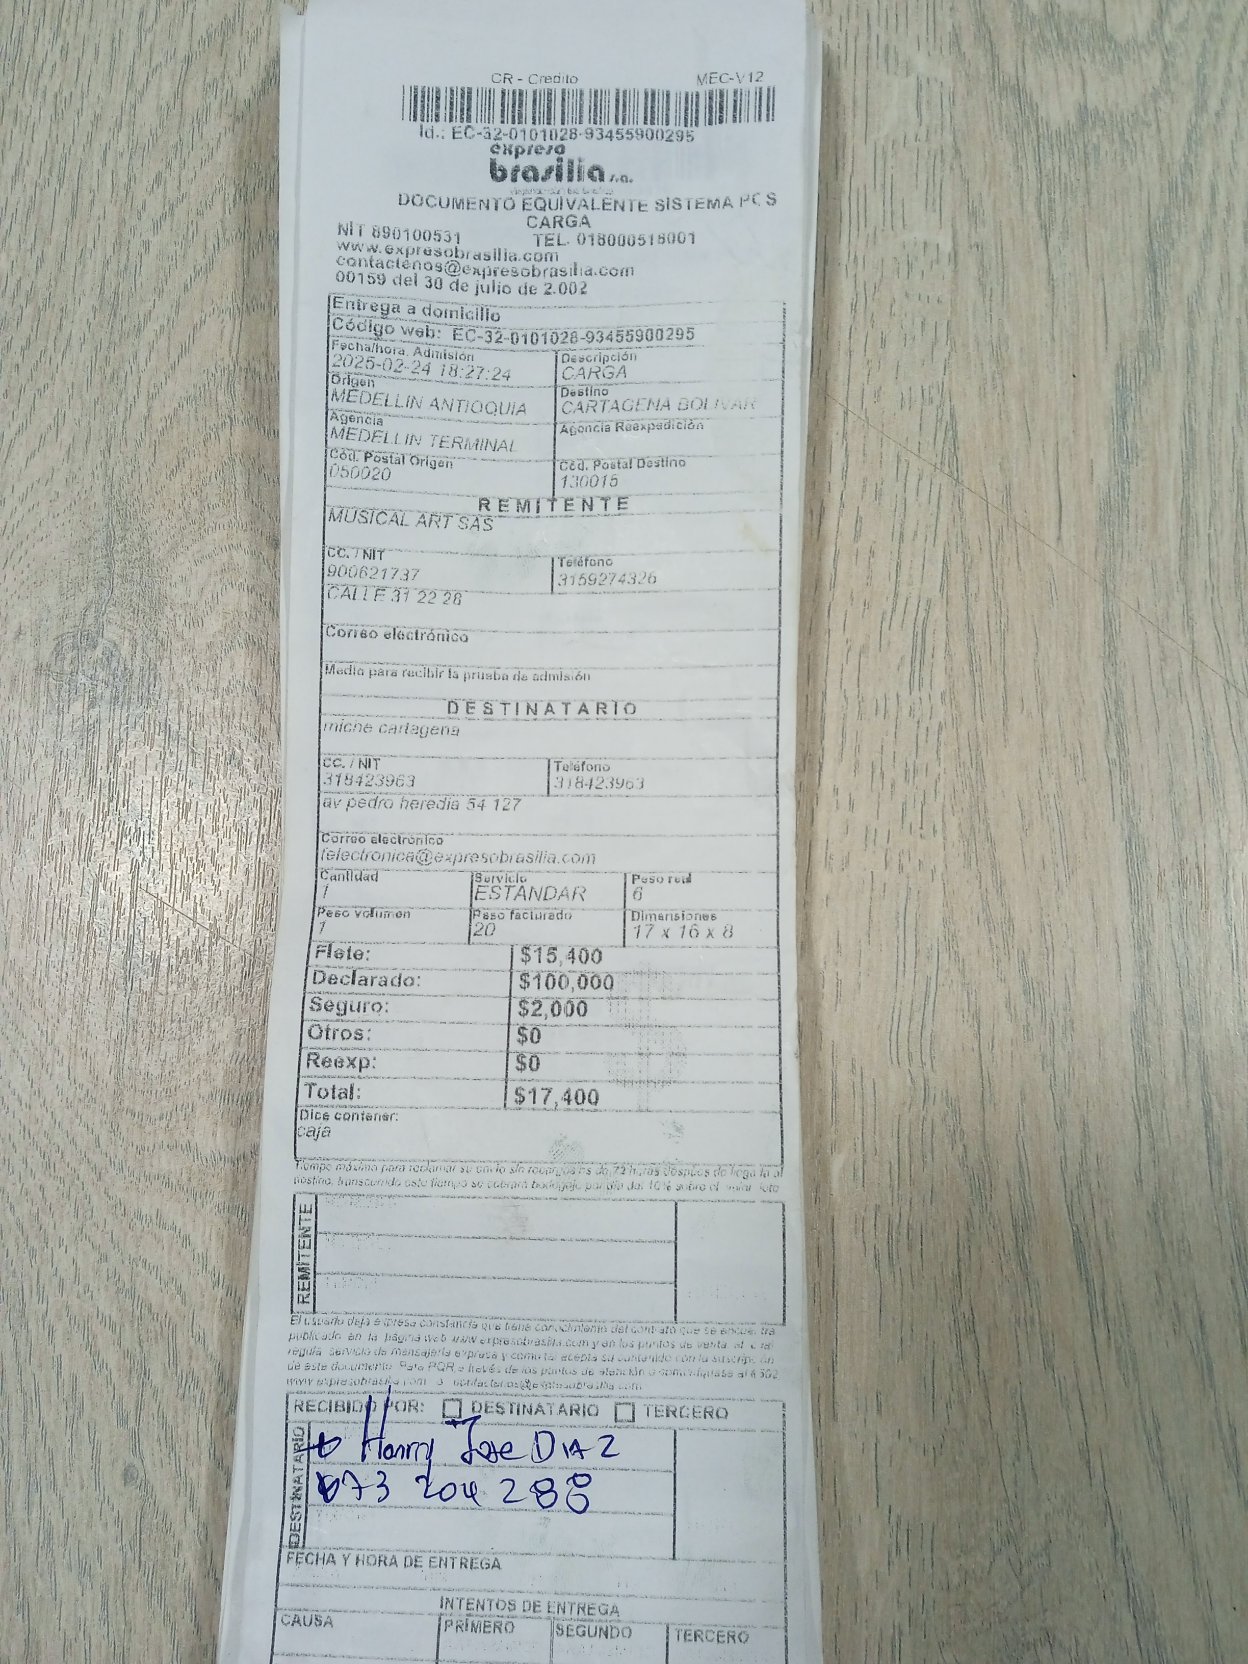 CR - Credito MEC-V12
Id.: EC-32-0101028-93455900295
expreso
brasilia s.a.
DOCUMENTO EQUIVALENTE SISTEMA POS
CARGA
NIT 890100531 TEL. 018000518001
www.expresobrasilia.com
contactenos@expresobrasilia.com
00159 del 30 de julio de 2.002
Entrega a domicilio
Código web: EC-32-0101028-93455900295
Fecha/hora Admisión Descripción
2025-02-24 18:27:24 CARGA
Origen Destino
MEDELLIN ANTIOQUIA CARTAGENA BOLIVAR
Agencia Agencia Reexpedición
MEDELLIN TERMINAL
Cód. Postal Origen Cód. Postal Destino
050020 130015
REMITENTE
MUSICAL ART SAS
CC. / NIT Teléfono
900621737 3159274326
CALLE 31 22 28
Correo electrónico
Medio para recibir la prueba de admisión
DESTINATARIO
miche cartagena
CC. / NIT Teléfono
318423963 318423963
av pedro heredia 54 127
Correo electrónico
felectronica@expresobrasilia.com
Cantidad Servicio Peso real
1 ESTANDAR 6
Peso volumen Peso facturado Dimensiones
1 20 17 x 16 x 8
Flete: $15,400
Declarado: $100,000
Seguro: $2,000
Otros: $0
Reexp: $0
Total: $17,400
Dice contener:
caja
Tiempo máximo para reclamar su envío sin recargos es de 72 horas después de llegada al
destino, transcurrido este tiempo se cobrará bodegaje por día del 10% sobre el valor
REMITENTE
El usuario deja expresa constancia que tiene conocimiento del contrato que se encuentra
publicado en la página web www.expresobrasilia.com y en los puntos de venta, el cual
regula servicio de mensajería expresa y como tal acepta su contenido con la suscripción
de este documento. Para PQR a través de los puntos de atención o comuníquese al
www.expresobrasilia.com contactenos@expresobrasilia.com
RECIBIDO POR: DESTINATARIO TERCERO
DESTINATARIO
Jose DIAZ
73 204 288
FECHA Y HORA DE ENTREGA
INTENTOS DE ENTREGA
CAUSA PRIMERO SEGUNDO TERCERO